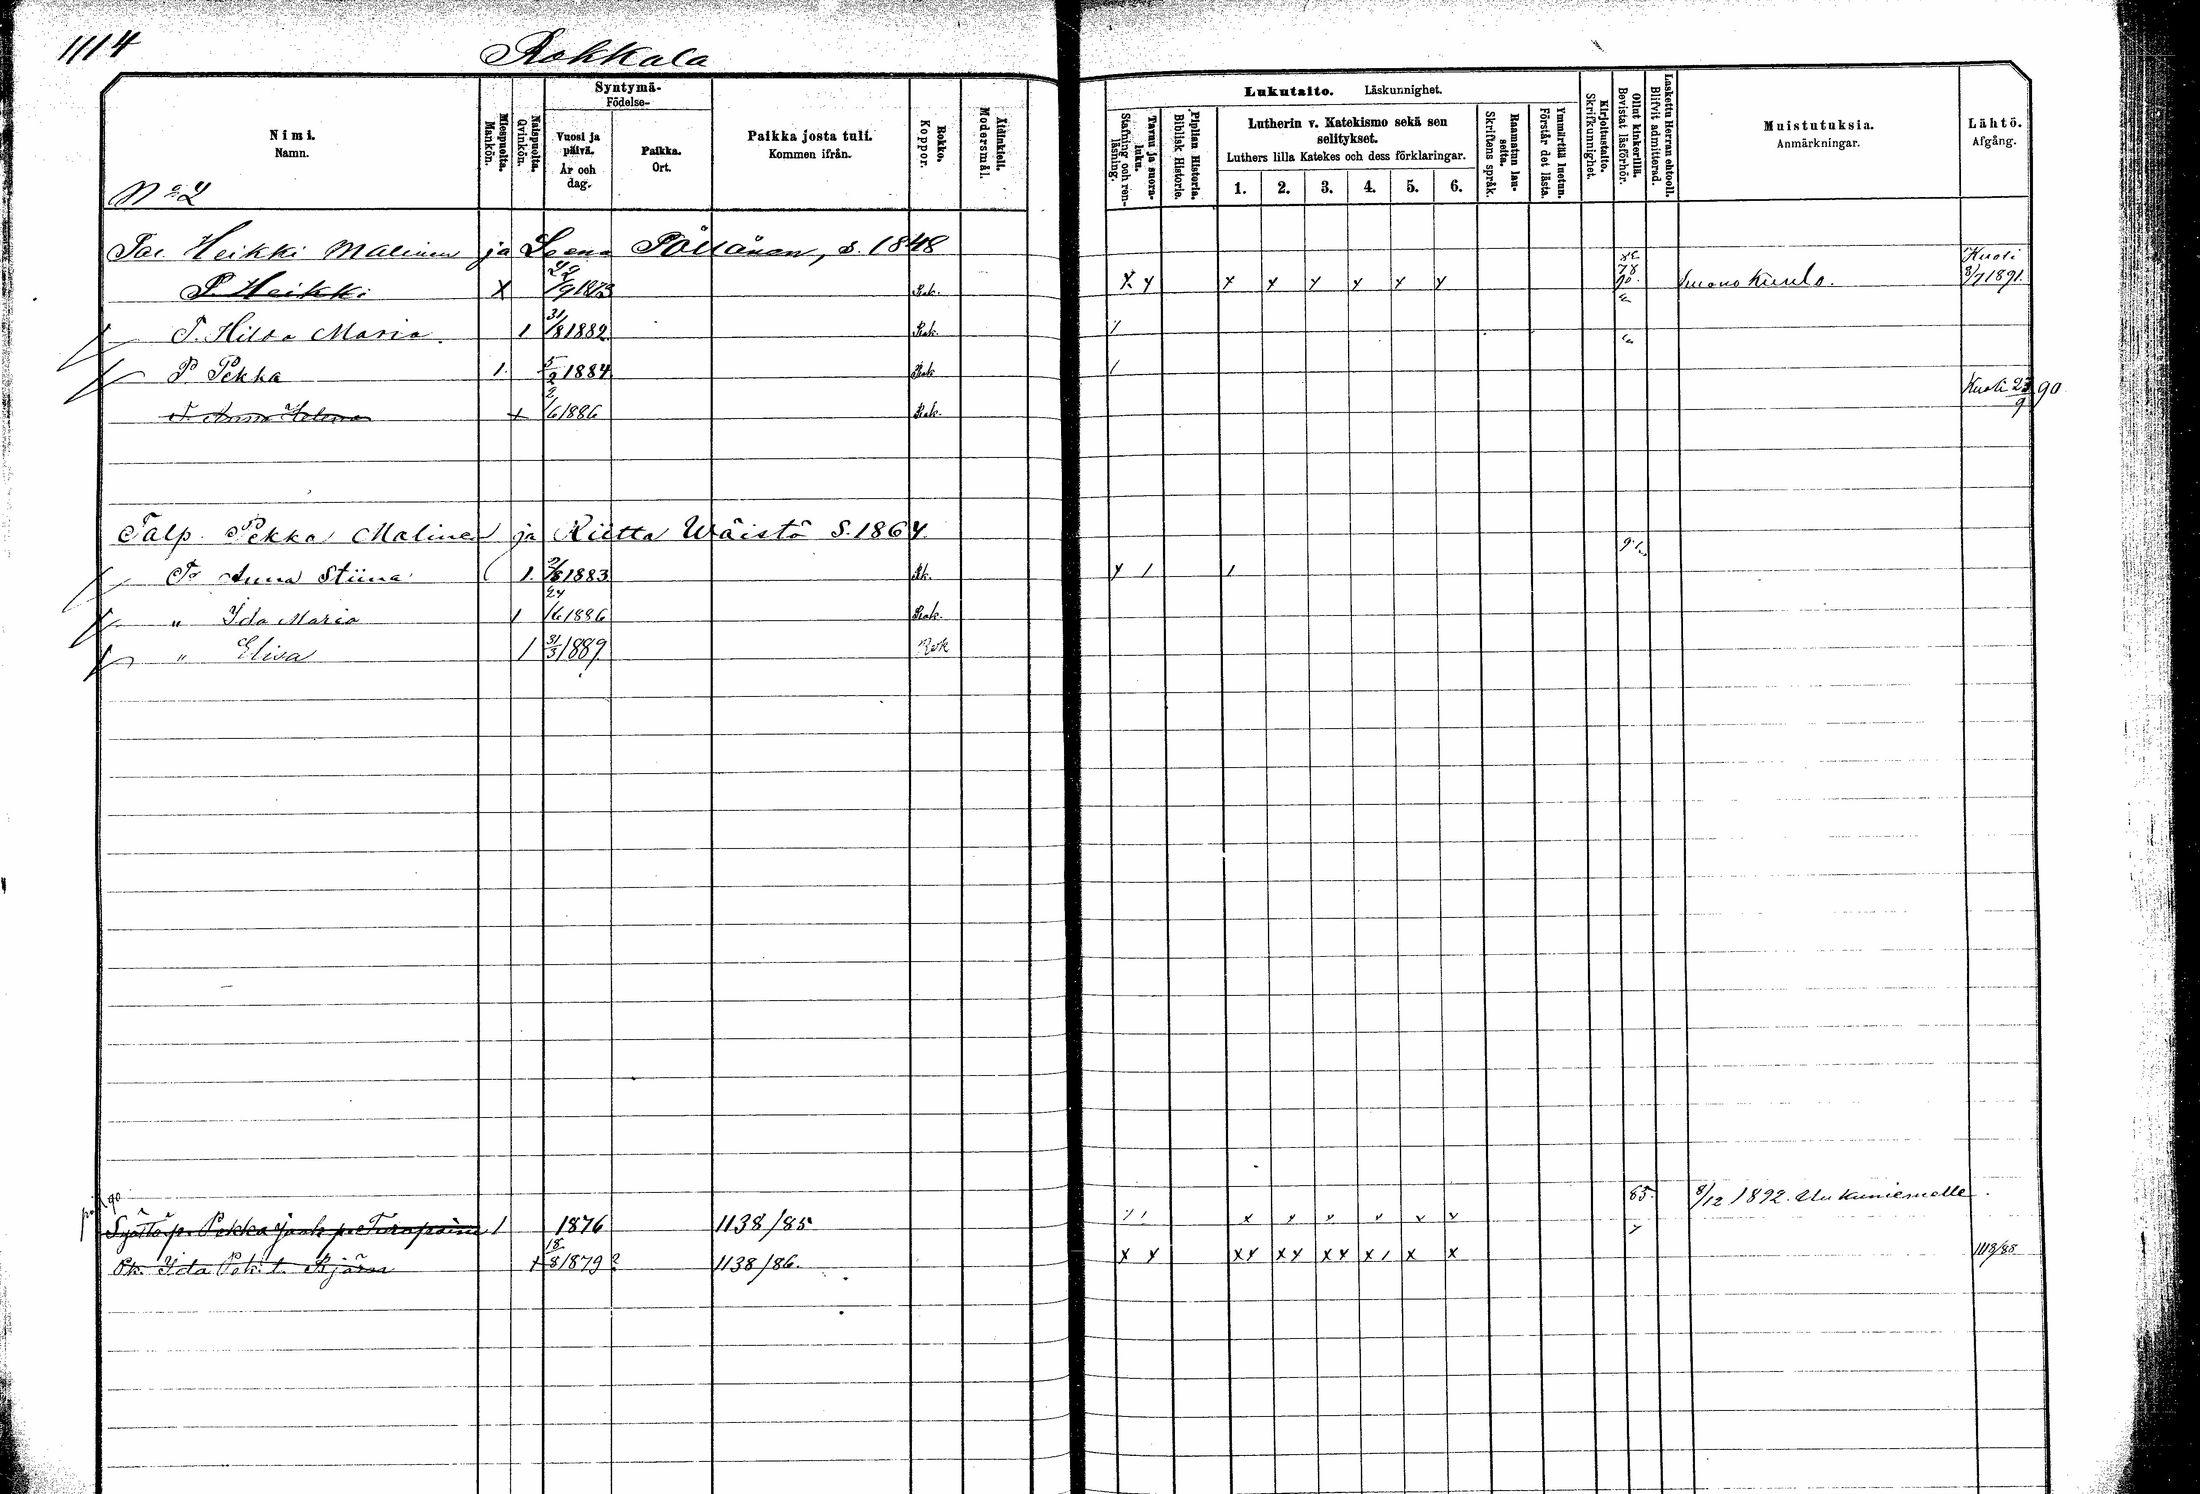 1114
Rokkala
Nimi.
Namn.
Miespuolta.
Mankön.
Naispuolta.
Qvinkön.
Syntymä-
Födelse-
Vuosi ja päivä.
År och dag.
Paikka.
Ort.
Paikka josta tuli.
Kommen ifrån.
Rokko.
Koppor.
Äidinkieli.
Modersmål.
Lukutaito. Läskunnighet.
Tavu ja suora-luku.
Stafning och ren-läsning.
Piplian Historia.
Biblisk Historie.
Lutherin v. Katekismo sekä sen selitykset.
Luthers lilla Katekes och dess förklaringar.
1. 2. 3. 4. 5. 6.
Raamatun lau-seita.
Skriftens språk.
Ymmärtää luetun.
Förstår det lästa.
Kirjoitustaito.
Skrifkunnighet.
Ollut kinkerillä.
Bevistat läsförhör.
Laskettu Herran ehtooll.
Blifvit admitterad.
Muistutuksia.
Anmärkningar.
Lähtö.
Afgång.
No 2
Heikki Malinen ja Leena Pöllänen, s. 1848
P. Heikki X 22/9 1873 Rok. X y x x y x x y Kuoli 8/7 1891.
T. Hilda Maria. 1 31/8 1882 Rok.
P. Pekka 1. 5/2 1884 Rok /
T. Anna Helena x 2/6 1886 Rok. Kuoli 23/9 90
Talp. Pekka Malinen ja Riitta Wäistö S. 1864
T. Anna Stiina 1. 2/8 1883 Rk. y / 1
" Ida Maria 1 24/6 1886 Rok.
" Elisa 1 31/3 1889 Rok
90
Pekka 1 1876 1138/85 x x v v v v 85. 8/12 1892.
Pk. Ida Pek. t. Björn x 18/8 1879? 1138/86. x x xx xx xx x1 x x 1113/88